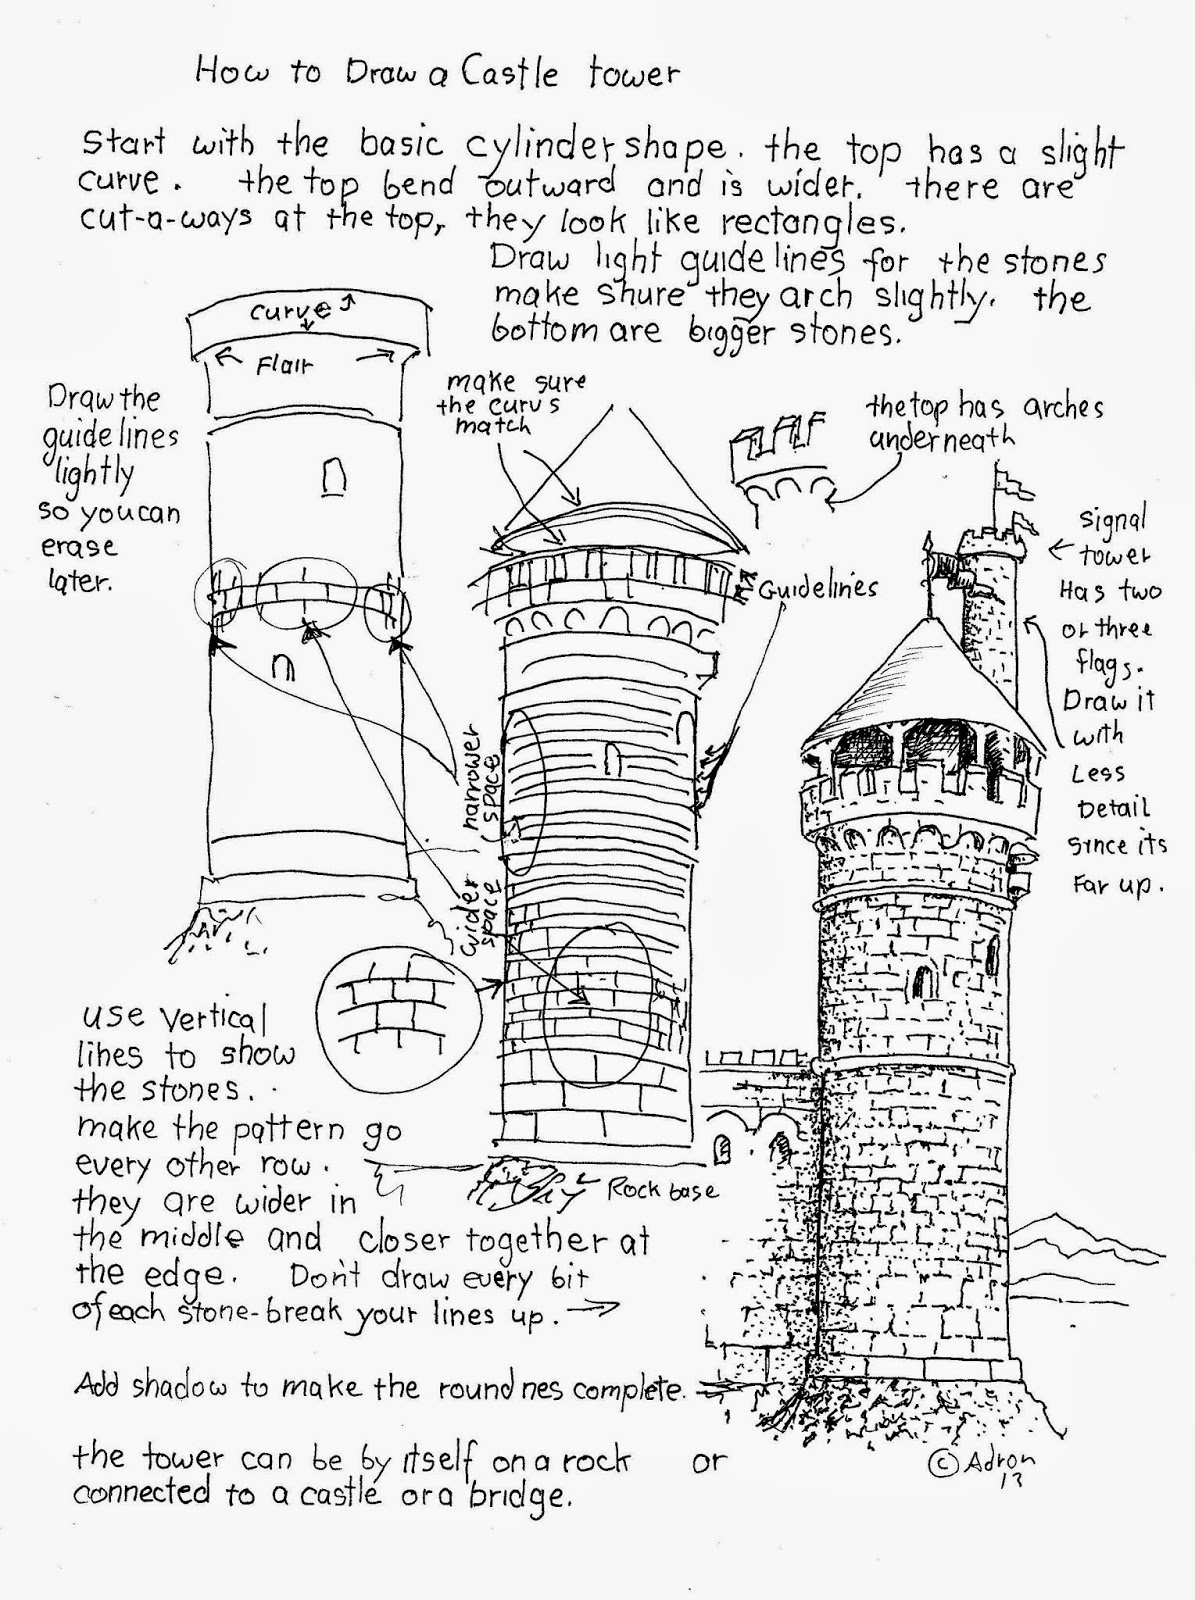 How to Draw a Castle tower
Start with the basic cylinder shape. the top has a slight
curve. the top bend outward and is wider. there are
cut-a-ways at the top, they look like rectangles.
Draw light guidelines for the stones
make shure they arch slightly. the
bottom are bigger stones.
curve
Flair
Draw the
guidelines
lightly
so you can
erase
later.
make sure
the curvs
match
the top has arches
underneath
Guidelines
signal
tower
Has two
or three
flags.
Draw it
with
Less
Detail
since its
Far up.
narrower
space
wider
space
use vertical
lines to show
the stones.
make the pattern go
every other row.
they are wider in
the middle and closer together at
the edge. Don't draw every bit
of each stone-break your lines up.
Rock base
Add shadow to make the roundnes complete.
the tower can be by itself on a rock or
connected to a castle or a bridge.
© Adron
13